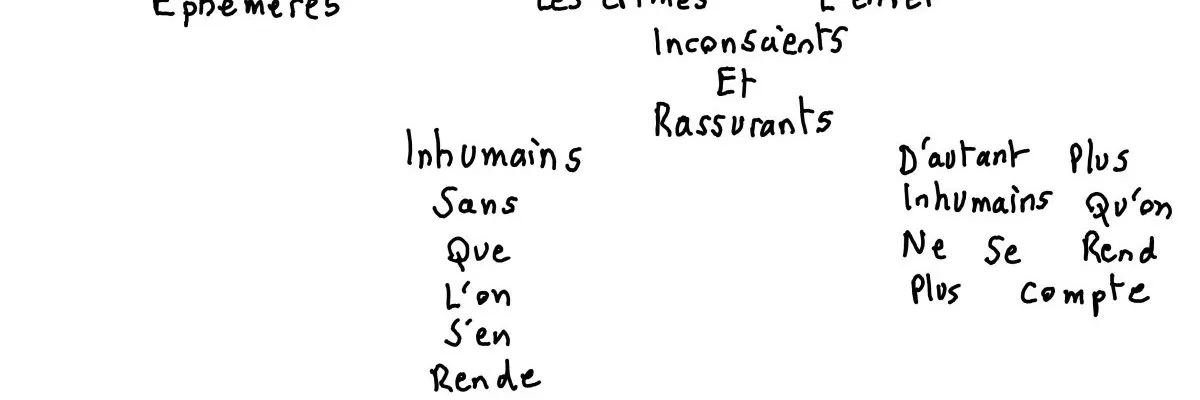 Ephémères Les crimes L'enfer
Inconscients
Et
Rassurants
Inhumains
Sans
Que
L'on
S'en
Rende
D'autant Plus
Inhumains Qu'on
Ne Se Rend
Plus compte